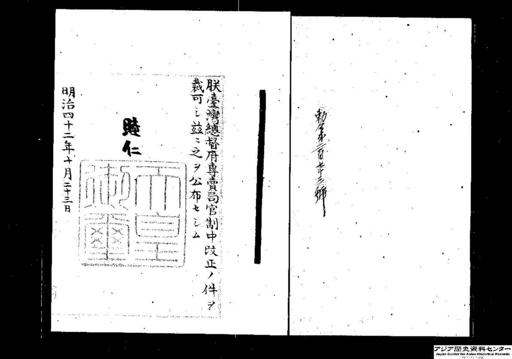 朕臺灣總督府專賣局官制中改正ノ件ヲ
裁可シ茲ニ之ヲ公布セシム
睦仁
天皇
御璽
明治四十二年十月二十三日
アジア歴史資料センター
Japan Center for Asian Historical Records